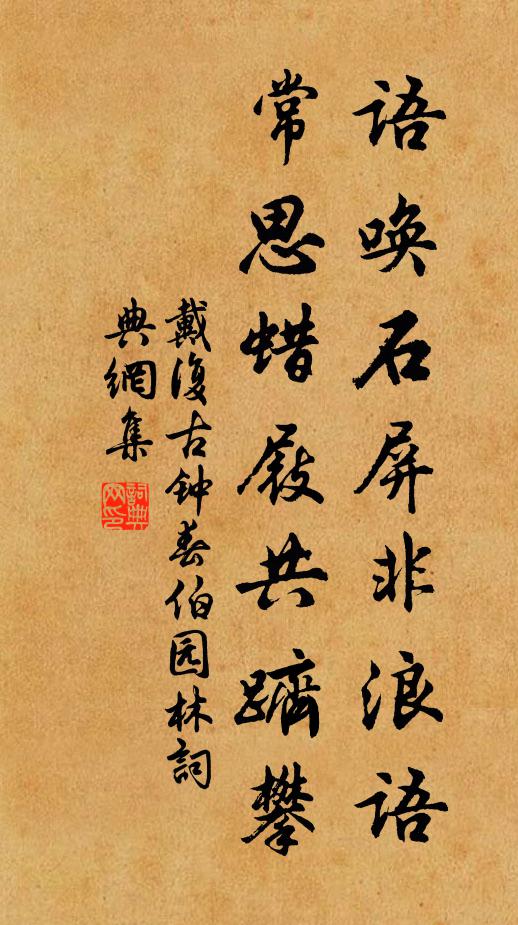 语唤石屏非浪语
常思蜡屐共跻攀
戴復古钟春伯园林詞
典網集
詞典網印